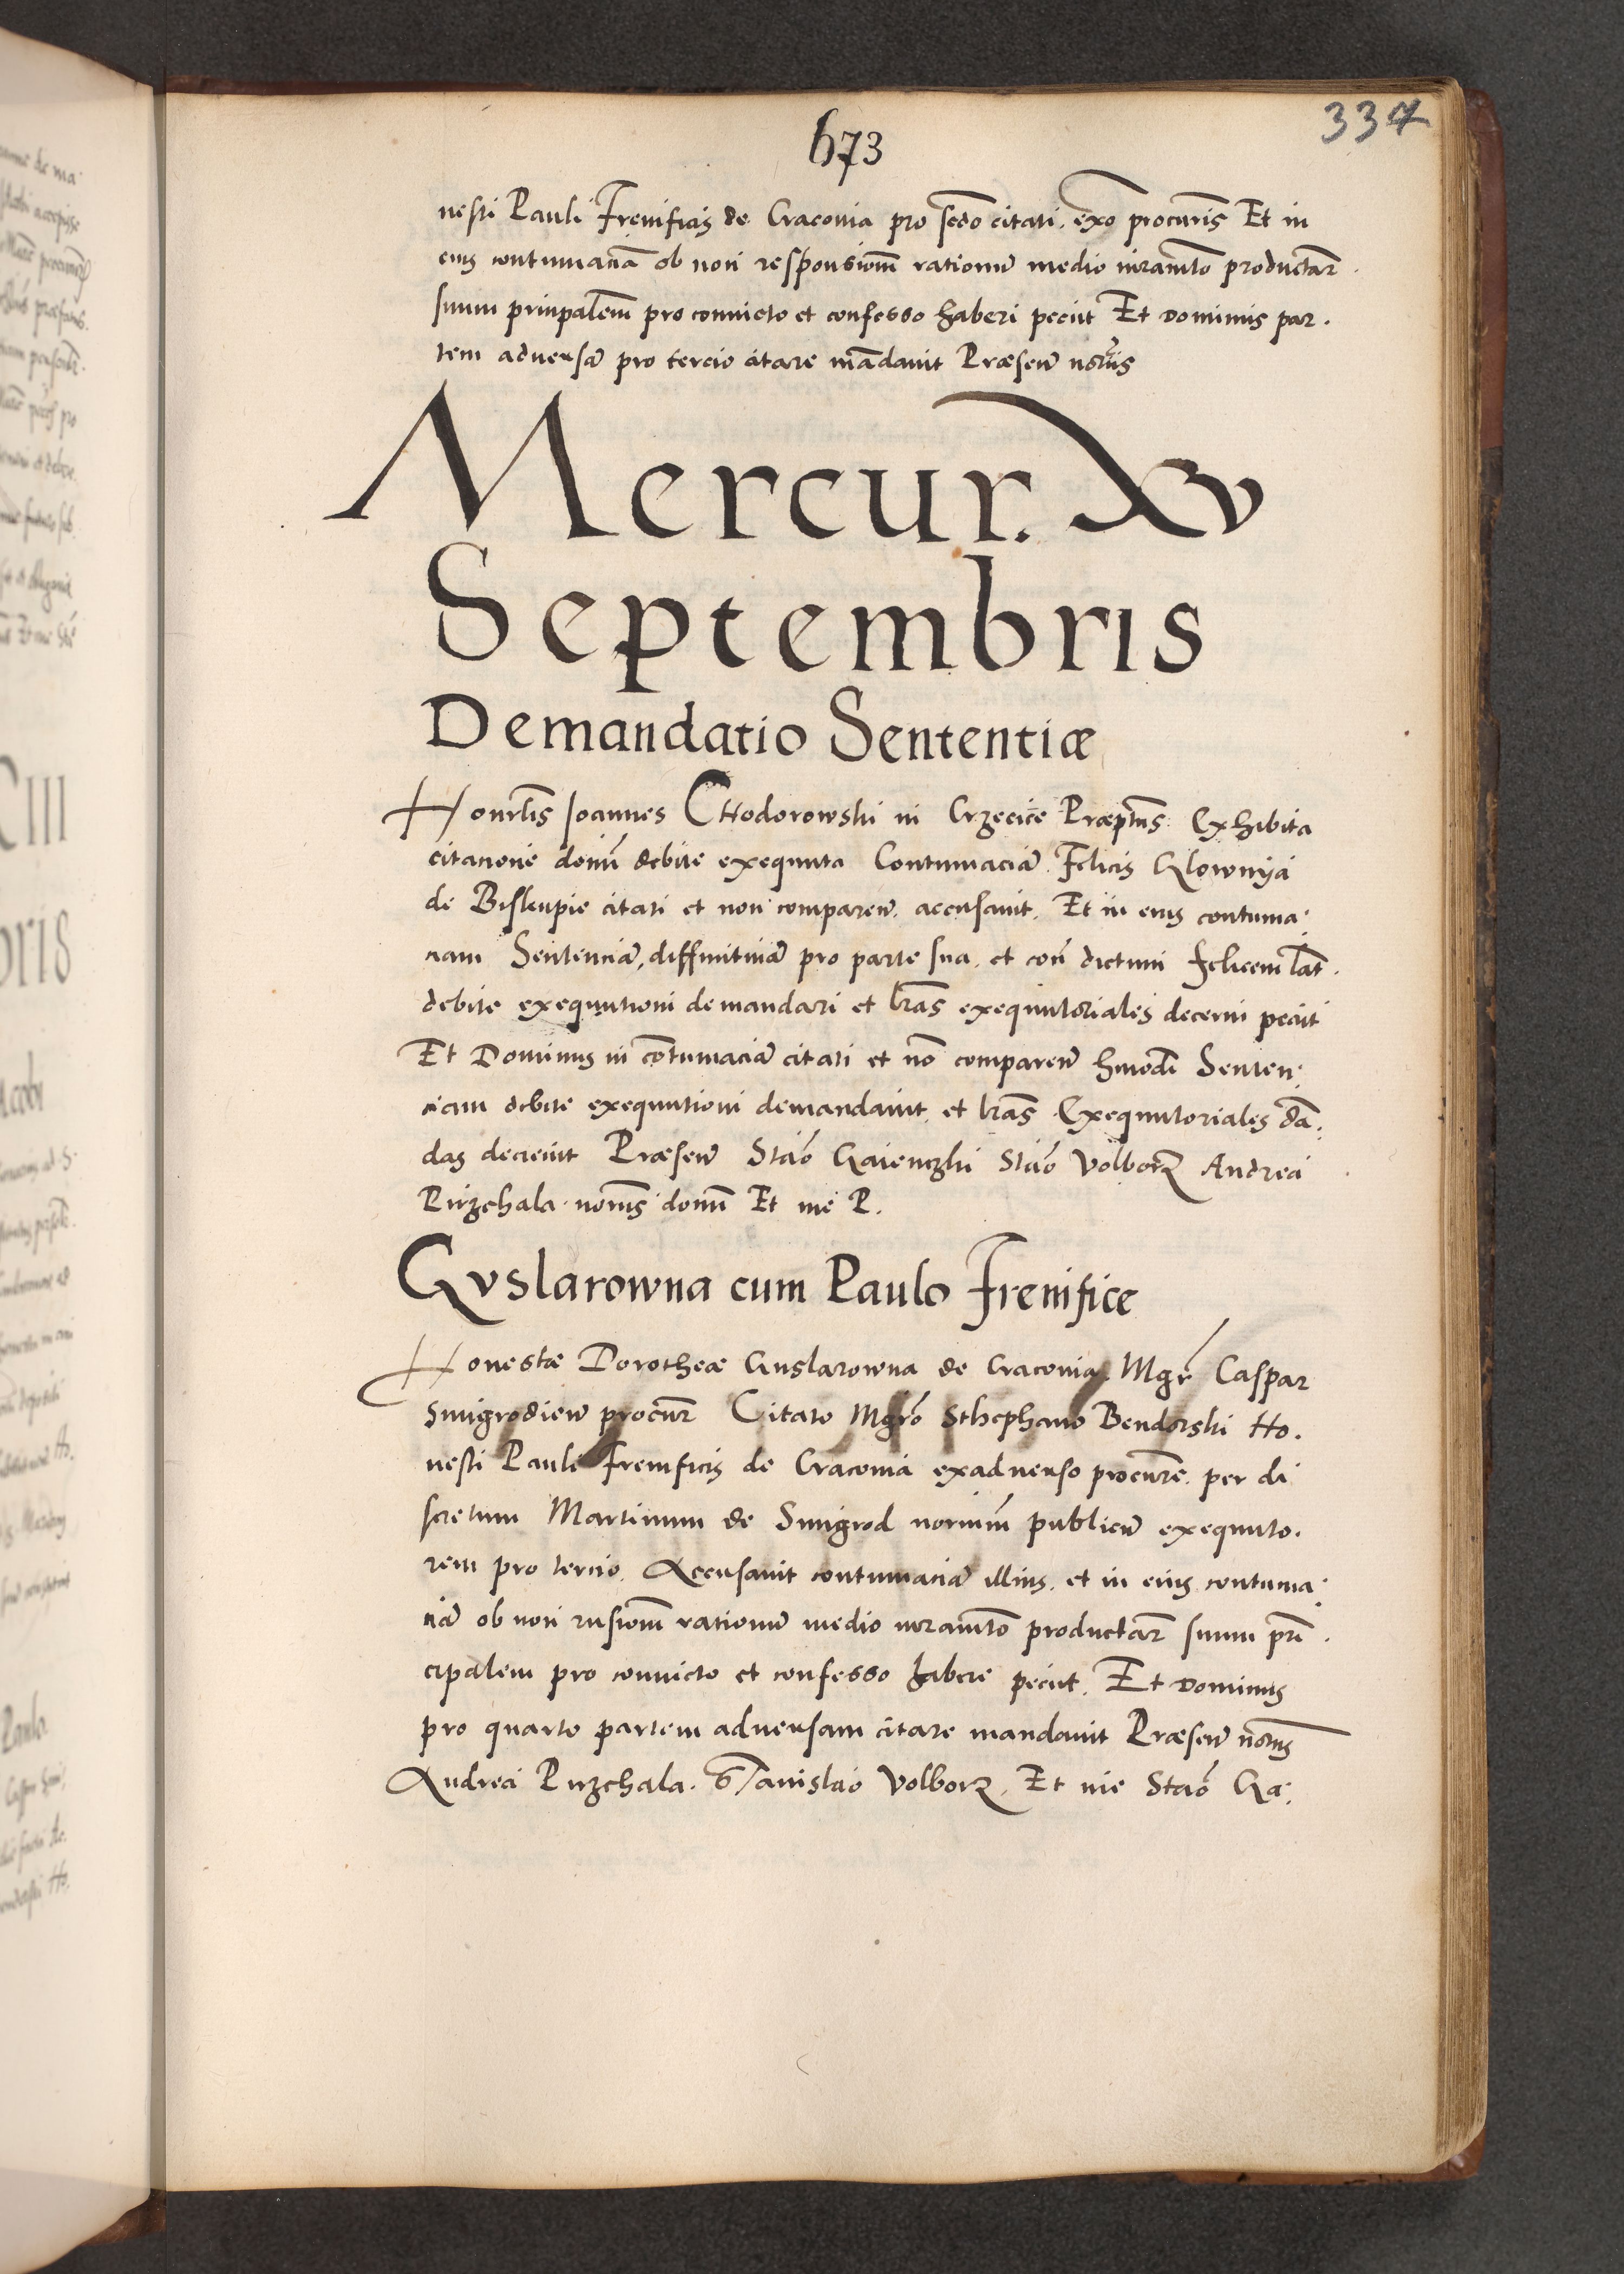 334
673
nesti Pauli Frenificis de Craconia pro scdo citati. exo procuris Et in
eius contumaciā ob non responsionem rationum medio iuramto productar̄
suum prinpalem pro conuicto et confesso haberi peciit Et Dominus par.
tem aduersā pro tercio citare mādauit Præsen̄ notriis
Mercur. XV
Septembris
Demandatio Sententiæ
Honrlis Ioannes CHodorowski in Crzecice Præptus. Exhibita
citatione domī debite exequuta Contumaciā. Felicis Glownya
de Biskupie citati et non comparen̄. accusauit. Et in eius contuma:
ciam Sentenciā, diffinitiuā pro parte sua. et con̄ dictum Felicem lat̄.
debite exequutioni demandari et lr̄as exequutoriales decerni peciit
Et Dominus in cōtumaciā citati et nō comparen̄ hmodi Senten:
ciam debite exequutioni demandauit. et lr̄as Exequutoriales dā:
das decreuit Præsen̄ Stāo Gaienczki Stāo Volborz Andrea
Pirzchala. notriis domī Et me P.
Guslarowna cum Paulo Frenifice
Honestæ Dorotheæ Guslarowna de Craconia. Mgr̄ Caspar
Smigrodien̄ procur̄ Citato Mgrō Sthephano Bendorski Ho.
nesti Pauli Frenificis de Craconia exaduerso procurē. per di
scretum Martinum de Smigrod norium publicū exequuto.
rem pro tercio. Accusauit contumaciā illius. et in eius contuma:
ciā ob non rnsionem rationum medio iuramto productar̄ suum prī.
cipalem pro conuicto et confesso habere peciit. Et Dominus
pro quarto partem aduersam citare mandauit Præsen̄ notriis
Andrea Pirzchala. Stanislao Volborz. Et me Stāo Ga: